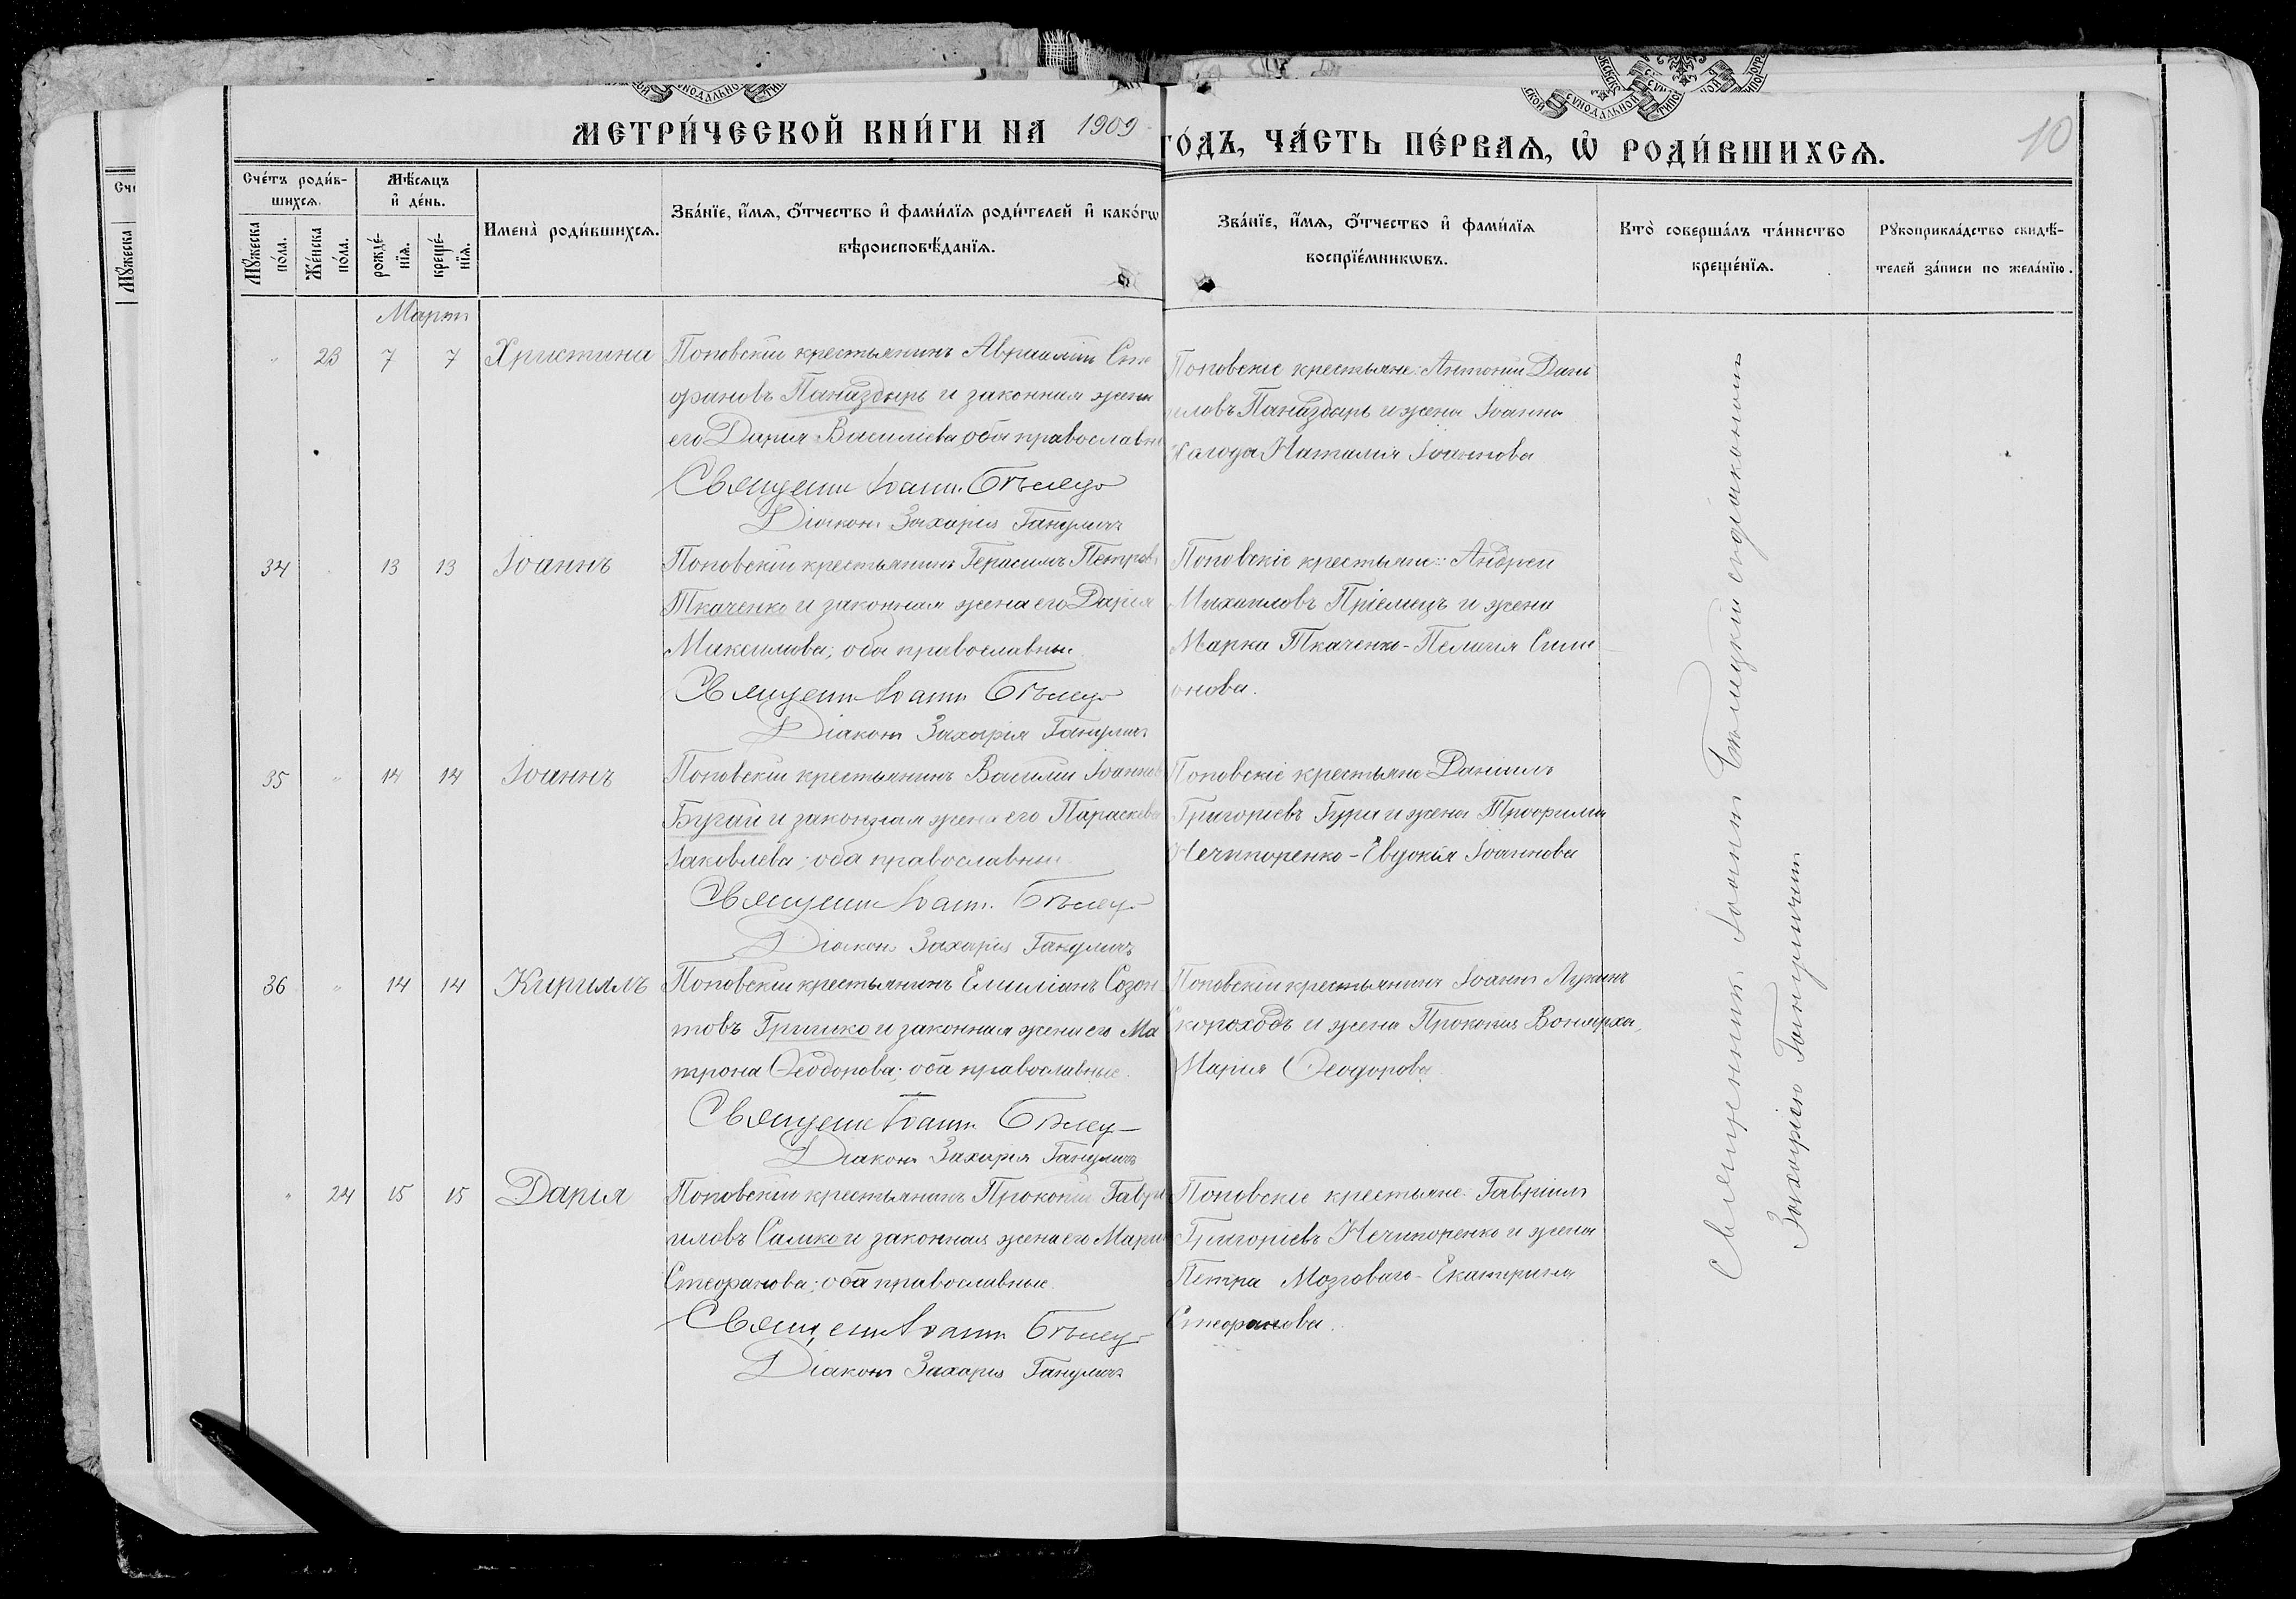 МЕТРИ́ЧЕСКОЙ КНИ́ГИ НА 1909 ГО́ДЪ, ЧА́СТЬ ПЕ́РВАѦ, Ѡ҆ РОДИ́ВШИХСѦ.
10
Сче́тъ роди́в-
шихсѧ.
Мѣ́сѧцъ
и҆ де́нь.
Мꙋ́жеска
по́ла.
Же́нска
по́ла.
рожде́-
нїѧ.
креще́-
нїѧ.
Имена̀ роди́вшихсѧ.
Зва́нїе, и҆́мѧ, ѻ҆́тчество и҆ фами́лїѧ роди́телей и҆ како́гѡ
вѣроисповѣ́данїѧ.
Зва́нїе, и҆́мѧ, ѻ҆́тчество и҆ фами́лїѧ
воспрїе́мникѡвъ.
Кто̀ соверша́лъ та́инство
креще́нїѧ.
Рꙋкоприкла́дство свидѣ́-
телей за́писи по жела́нїю.
Мартъ
" 23 7 7 Христина
Поповскій крестьянинъ Авраамій Сте
фановъ Паназдырь и законная жена
его Дарія Василіева, оба православн
Священ Іоанн. Бѣлец
Діаконъ Захарія Ганулич
Поповскіе крестьяне: Антоній Дани
иловъ Паназдырь и жена Іоанна
Наталія Іоаннова
34 " 13 13 Іоаннъ
Поповскій крестьянинъ Герасимъ Петров
Ткаченко и законная жена его Дарія
Максимова; оба православные
Священ Іоанн Бѣлец
Діаконъ Захарія Ганулич
Поповскіе крестьяне: Андрей
Михаиловъ Пріемецъ и жена
Марка Ткаченко - Пелагія Сими
онова.
35 " 14 14 Іоаннъ
Поповскій крестьянинъ Василій Іоаннов
Бугай и законная жена его Параскева
Іаковлева; оба православные
Священ Іоанн. Бѣлец
Діаконъ Захарія Ганулич
Поповскіе крестьяне Даніилъ
Григоріевъ Гура и жена Трофима
Нечипоренко - Евдокія Іоаннова
36 " 14 14 Кириллъ
Поповскій крестьянинъ Емиліанъ Созон
товъ Гришко и законная жена его Ма
трона Ѳеодорова; оба православные.
Священ Іоанн. Бѣлец
Діаконъ Захарія Ганулич
Поповскій крестьянинъ Іоаннъ Лукинъ
Скороходъ и жена Прокопія Вонярха,
Марія Ѳеодорова
" 24 15 15 Дарія
Поповскій крестьянинъ Прокопій Гаври
иловъ Салико и законная жена его Марія
Стефанова; оба православные.
Священ Іоанн Бѣлец
Діаконъ Захарія Ганулич
Поповскіе крестьяне: Гавріилъ
Григоріевъ Нечипоренко и жена
Петра Мозговаго - Екатерина
Стефанова.
Священник Іоанн Бѣлецкій с діакономъ
Захаріею Гануличемъ